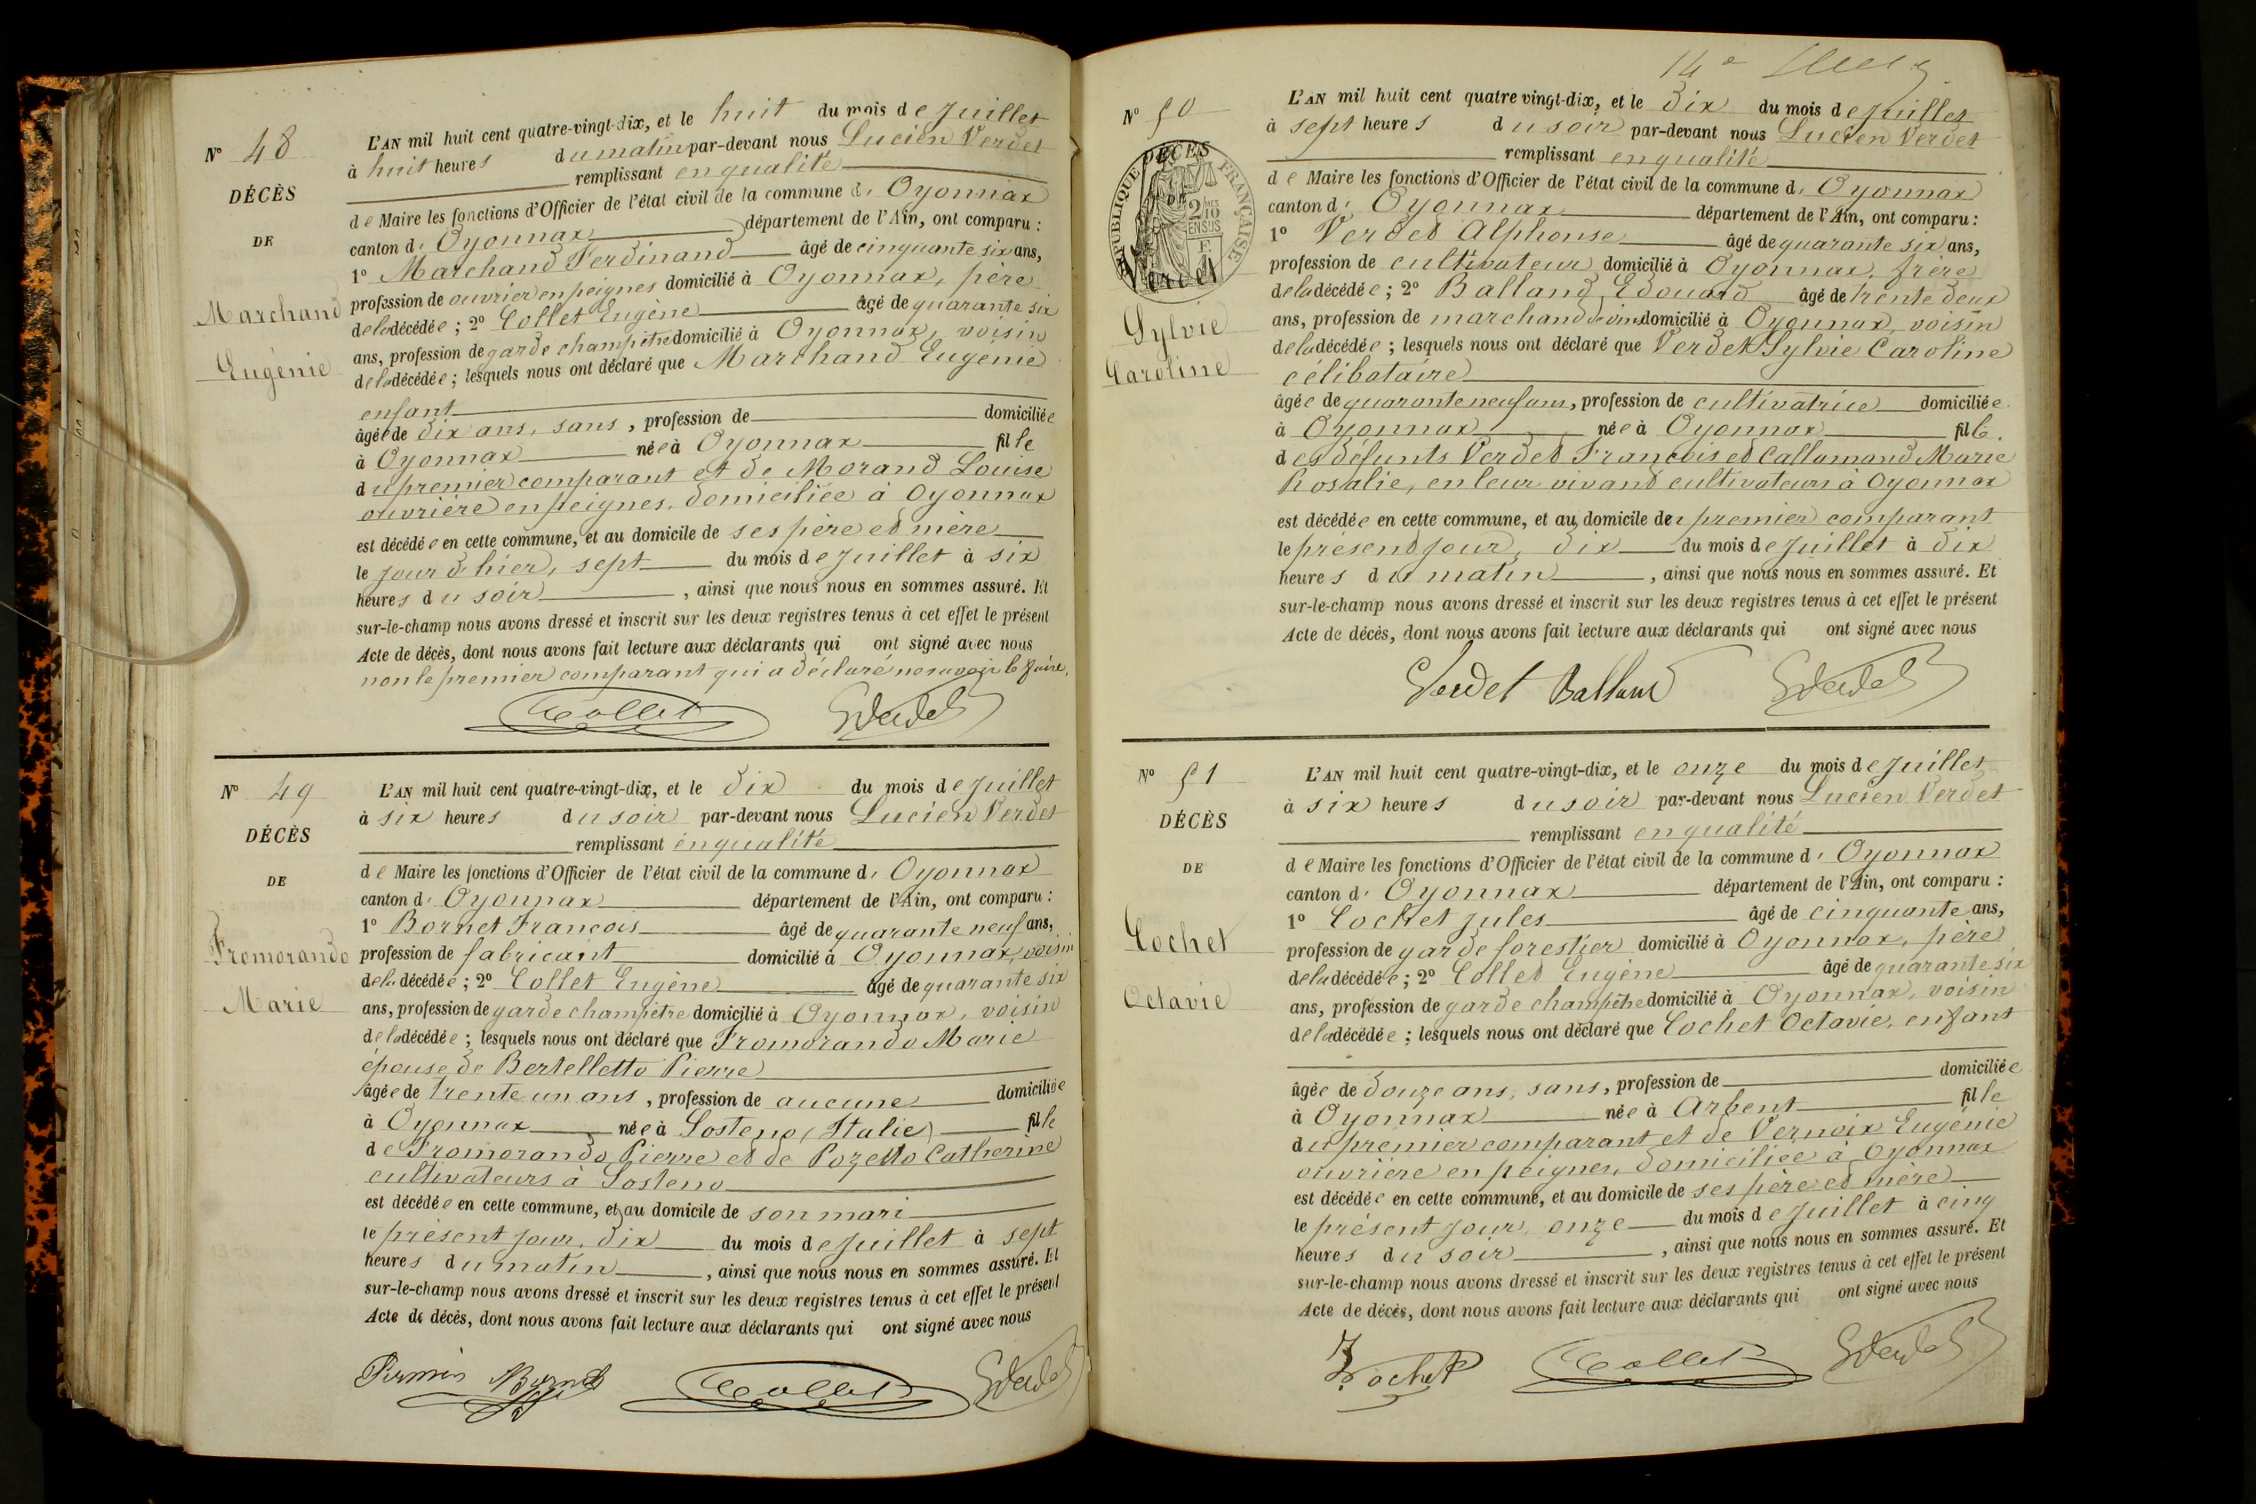 Nº 48
DÉCÈS
DE
Marchand
Eugénie
L'AN mil huit cent quatre-vingt-dix, et le huit du mois de Juillet
à huit heures du matin par-devant nous Lucien Verdet
remplissant en qualité
de Maire les fonctions d'Officier de l'état civil de la commune d' Oyonnax
canton d' Oyonnax département de l'Ain, ont comparu :
1º Marchand Ferdinand âgé de cinquante six ans,
profession de ouvrier en peignes domicilié à Oyonnax, père
de la décédée ; 2º Collet Eugène âgé de quarante six
ans, profession de garde champêtre domicilié à Oyonnax, voisin
de la décédée ; lesquels nous ont déclaré que Marchand Eugénie
enfant
âgée de dix ans, sans, profession de domiciliée
à Oyonnax née à Oyonnax fille
du premier comparant et de Morand Louise
ouvrière en peignes, domiciliée à Oyonnax
est décédée en cette commune, et au domicile de ses père et mère
le jour d'hier, sept du mois de Juillet à six
heures du soir, ainsi que nous nous en sommes assuré. Et
sur-le-champ nous avons dressé et inscrit sur les deux registres tenus à cet effet le présent
Acte de décès, dont nous avons fait lecture aux déclarants qui ont signé avec nous
non le premier comparant qui a déclaré ne savoir le faire.
Collet Verdet
Nº 49
DÉCÈS
DE
Fromorando
Marie
L'AN mil huit cent quatre-vingt-dix, et le dix du mois de Juillet
à six heures du soir par-devant nous Lucien Verdet
remplissant en qualité
de Maire les fonctions d'Officier de l'état civil de la commune d' Oyonnax
canton d' Oyonnax département de l'Ain, ont comparu :
1º Bornet François âgé de quarante neuf ans,
profession de fabricant domicilié à Oyonnax, voisin
de la décédée ; 2º Collet Eugène âgé de quarante six
ans, profession de garde champêtre domicilié à Oyonnax, voisin
de la décédée ; lesquels nous ont déclaré que Fromorando Marie
épouse de Bertelletto Pierre
âgée de trente un ans, profession de aucune domiciliée
à Oyonnax née à Sosteno (Italie) fille
de Fromorando Pierre et de Pozetto Catherine
cultivateurs à Sosteno
est décédée en cette commune, et au domicile de son mari
le présent jour, dix du mois de Juillet à sept
heures du matin, ainsi que nous nous en sommes assuré. Et
sur-le-champ nous avons dressé et inscrit sur les deux registres tenus à cet effet le présent
Acte de décès, dont nous avons fait lecture aux déclarants qui ont signé avec nous
Collet Verdet
Nº 50
RÉPUBLIQUE FRANÇAISE
DÉCÈS
DE
2/10 EN SUS
Verdet
Sylvie
Caroline
L'AN mil huit cent quatre vingt-dix, et le dix du mois de Juillet
à sept heures du soir par-devant nous Lucien Verdet
remplissant en qualité
de Maire les fonctions d'Officier de l'état civil de la commune d' Oyonnax
canton d' Oyonnax département de l'Ain, ont comparu :
1º Verdet Alphonse âgé de quarante six ans,
profession de cultivateur domicilié à Oyonnax, frère
de la décédée ; 2º Balland Edouard âgé de trente deux
ans, profession de marchand de vins domicilié à Oyonnax, voisin
de la décédée ; lesquels nous ont déclaré que Verdet Sylvie Caroline
célibataire
âgée de quarante neuf ans, profession de cultivatrice domiciliée
à Oyonnax née à Oyonnax fille
des défunts Verdet François et Callamand Marie
Rosalie, en leur vivant cultivateurs à Oyonnax
est décédée en cette commune, et au domicile du premier comparant
le présent jour, dix du mois de Juillet à dix
heures du matin, ainsi que nous nous en sommes assuré. Et
sur-le-champ nous avons dressé et inscrit sur les deux registres tenus à cet effet le présent
Acte de décès, dont nous avons fait lecture aux déclarants qui ont signé avec nous
Verdet Balland Verdet
Nº 51
DÉCÈS
DE
Cochet
Octavie
L'AN mil huit cent quatre-vingt-dix, et le onze du mois de Juillet
à six heures du soir par-devant nous Lucien Verdet
remplissant en qualité
de Maire les fonctions d'Officier de l'état civil de la commune d' Oyonnax
canton d' Oyonnax département de l'Ain, ont comparu :
1º Cochet Jules âgé de cinquante ans,
profession de garde forestier domicilié à Oyonnax, père
de la décédée ; 2º Collet Eugène âgé de quarante six
ans, profession de garde champêtre domicilié à Oyonnax, voisin
de la décédée ; lesquels nous ont déclaré que Cochet Octavie, enfant
âgée de douze ans, sans, profession de domiciliée
à Oyonnax née à Arbent fille
du premier comparant et de Vernoix Eugénie
ouvrière en peignes, domiciliée à Oyonnax
est décédée en cette commune, et au domicile de ses père et mère
le présent jour, onze du mois de Juillet à cinq
heures du soir, ainsi que nous nous en sommes assuré. Et
sur-le-champ nous avons dressé et inscrit sur les deux registres tenus à cet effet le présent
Acte de décès, dont nous avons fait lecture aux déclarants qui ont signé avec nous
Cochet Collet Verdet